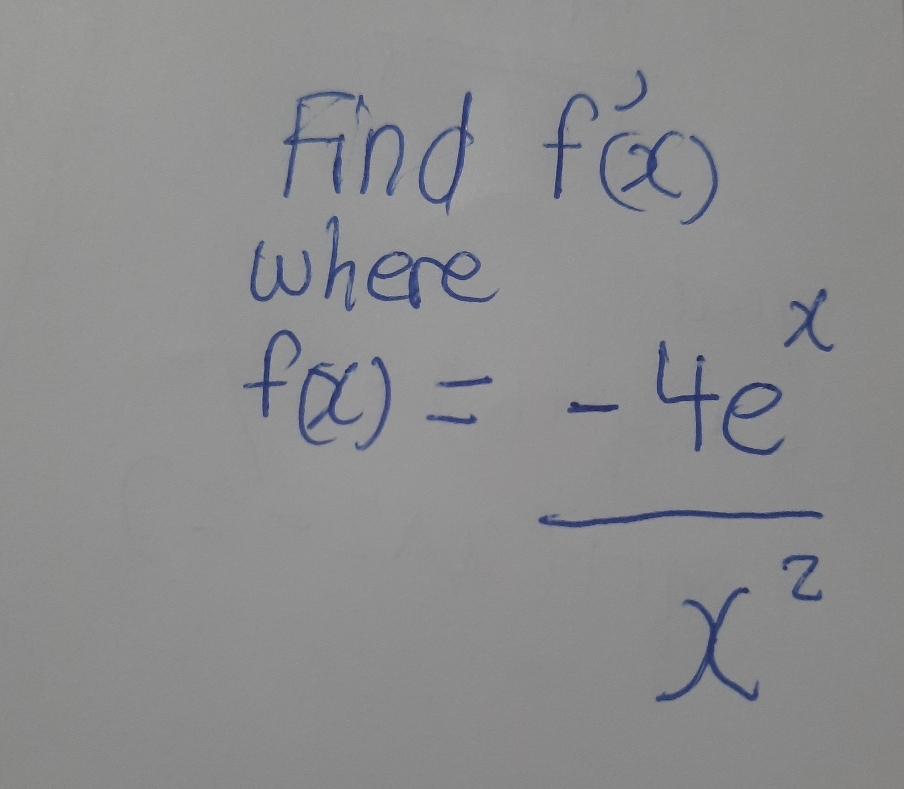 Find f'(x)
where
f(x) = -4e^x
x^2